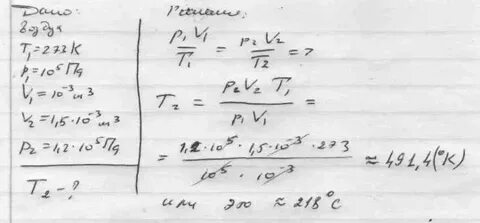 Дано:
воздух
T₁=273K
p₁=10⁵Па
V₁=10⁻³м3
V₂=1,5·10⁻³м3
p₂=1,2·10⁵Па
T₂-?
Решение:
p₁V₁/T₁ = p₂V₂/T₂ =>
T₂ = p₂V₂T₁/p₁V₁ =
= 1,2·10⁵·1,5·10⁻³·273/10⁵·10⁻³ ≈ 491,4(°K)
или это ≈ 218°C